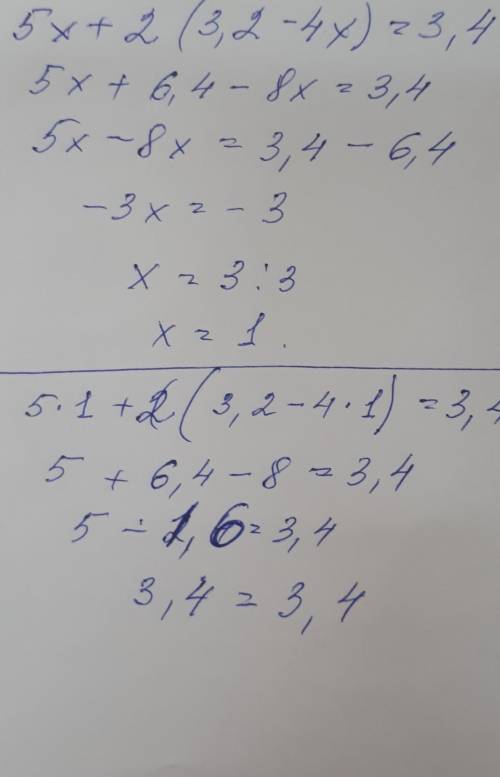 5x + 2 (3,2 - 4x) = 3,4
5x + 6,4 - 8x = 3,4
5x - 8x = 3,4 - 6,4
-3x = - 3
x = 3 : 3
x = 1 .
5 · 1 + 2 ( 3,2 - 4 · 1) = 3,4
5 + 6,4 - 8 = 3,4
5 - 1,6 = 3,4
3,4 = 3,4